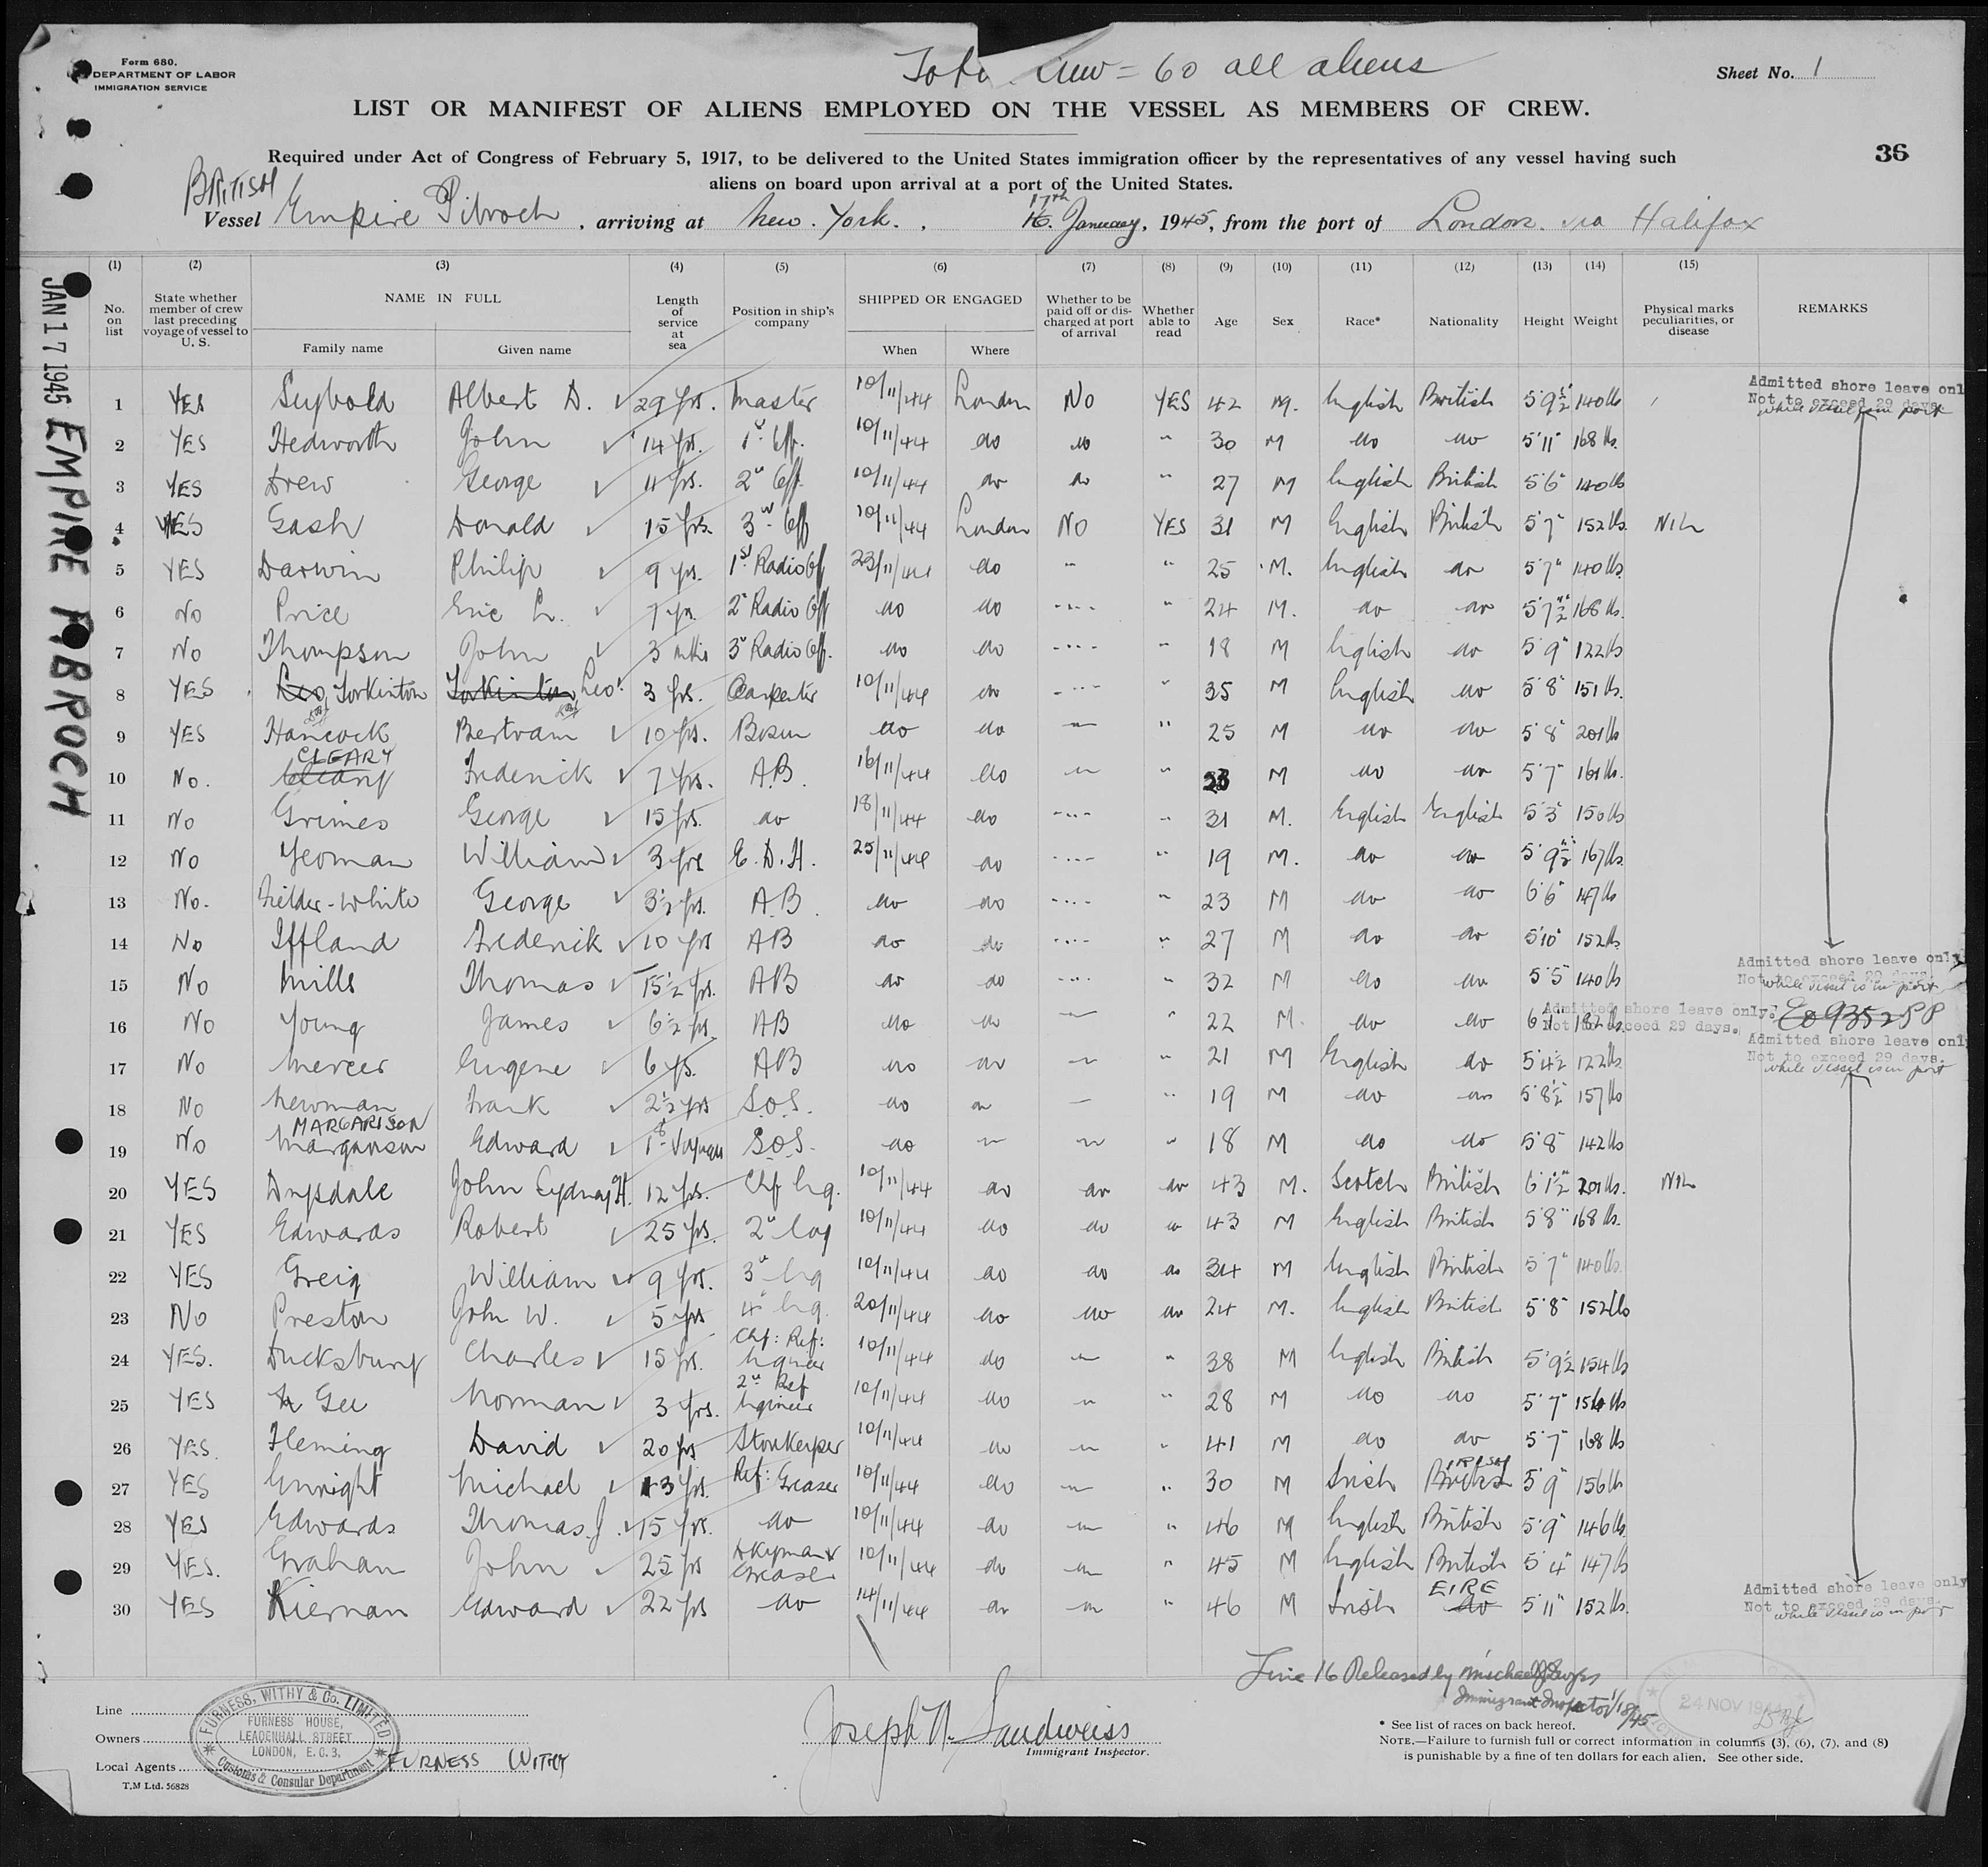 Form 680.
DEPARTMENT OF LABOR
IMMIGRATION SERVICE
Crew = 60 all aliens
Sheet No. 1
LIST OR MANIFEST OF ALIENS EMPLOYED ON THE VESSEL AS MEMBERS OF CREW.
36
Required under Act of Congress of February 5, 1917, to be delivered to the United States immigration officer by the representatives of any vessel having such
aliens on board upon arrival at a port of the United States.
BRITISH
Vessel Empire Pibroch, arriving at New. York., 17th 16. January, 1945, from the port of London. via Halifax
JAN 17 1945 EMPIRE PIBROCH
(1) (2) (3) (4) (5) (6) (7) (8) (9) (10) (11) (12) (13) (14) (15)
No. on list
State whether member of crew last preceding voyage of vessel to U. S.
NAME IN FULL
Family name Given name
Length of service at sea
Position in ship's company
SHIPPED OR ENGAGED
When Where
Whether to be paid off or discharged at port of arrival
Whether able to read
Age Sex Race* Nationality Height Weight
Physical marks peculiarities, or disease
REMARKS
1 YES Albert D. 29 yrs. Master 10/11/44 London No YES 42 M. English British 5'9½" 140 lb
Admitted shore leave onl
Not to exceed 29 days.
while vessel is in port
2 YES Hedworth John 14 yrs. 1st Off. 10/11/44 do do " 30 M do do 5'11" 168 lbs.
3 YES Drew George 11 yrs. 2nd Off. 10/11/44 do do " 27 M English British 5'6" 140 lbs
4 YES Gash Donald 15 yrs. 3rd Off 10/11/44 London No YES 31 M English British 5'7" 152 lbs. NIL
5 YES Darwin Philip 9 yrs. 1st Radio Off 23/11/44 do " " 25 M. English do 5'7" 140 lbs.
6 No Price Eric 7 yrs. 2nd Radio Off do do " " 24 M. do do 5'7½" 168 lbs.
7 No Thompson John 3 mths 3rd Radio Off. do do " " 18 M English do 5'9" 122 lbs
8 YES Leo Torkinton Torkinton Leo. 3 yrs. Carpenter 10/11/44 do " " 35 M English do 5'8" 151 lbs.
9 YES Hancock Bertram 10 yrs. Bosun do do " " 25 M do do 5'8" 201 lbs
CLEARY
10 No. Cleary Frederick 7 yrs. A.B. 16/11/44 do " " M do do 5'7" 161 lbs.
11 No Grimes George 15 yrs. do 18/11/44 do " " 31 M. English English 5'3" 150 lbs
12 No Yeoman William 3 yrs E.D.H. 25/11/44 do " " 19 M. do do 5'9½" 167 lbs.
13 No. Fielder-White George 3½ yrs. A.B. do do " " 23 M do do 6'6" 147 lbs
14 No Iffland Frederick 10 yrs AB do do " " 27 M do do 5'10" 152 lbs.
Admitted shore leave only
Not to exceed 29 days.
while vessel is in port
15 No Mills Thomas 15½ yrs. AB do do " " 32 M do do 5'5" 140 lbs
16 No Young James 6½ yrs. AB do do " " 22 M. do do 6'1" 182 lbs.
Admitted shore leave only.
Not to exceed 29 days.
Admitted shore leave onl
Not to exceed 29 days.
while vessel is in port
17 No Mercer Eugene 6 yrs. AB do do " " 21 M English do 5'4½" 122 lbs.
18 No Newman Frank 2½ yrs S.O.S. do do " " 19 M do do 5'8½" 157 lbs
MARGARISON
19 No Edward 1st Voyage S.O.S. do " " " 18 M do do 5'8" 142 lbs
20 YES Drysdale John Sydney H. 12 yrs. Chf Eng. 10/11/44 do do do 43 M. Scotch British 6'1½" 201 lbs. NIL
21 YES Edwards Robert 25 yrs. 2nd Eng 10/11/44 do do do 43 M English British 5'8" 168 lbs.
22 YES Greig William 9 yrs. 3rd Eng 10/11/44 do do do 34 M English British 5'7" 140 lbs.
23 No Preston John W. 5 yrs 4th Eng. 20/11/44 do do do 24 M. English British 5'8" 152 lbs
24 YES. Ducksbury Charles 15 yrs. Chf: Ref: Engineer 10/11/44 do " " 38 M English British 5'9½" 154 lbs
25 YES Gee Norman 3 yrs. 2nd Ref Engineer 10/11/44 do " " 28 M do do 5'7" 154 lbs
26 YES. Fleming David 20 yrs Storekeeper 10/11/44 do " " 41 M do do 5'7" 168 lbs
27 YES Enright Michael 13 yrs. Ref: Greaser 10/11/44 do " " 30 M Irish British IRISH 5'9" 156 lbs
28 YES Edwards Thomas J. 15 yrs. do 10/11/44 do " " 46 M English British 5'9" 146 lbs
29 YES. Graham John 25 yrs Dkyman & Greaser 10/11/44 do " " 45 M English British 5'4" 147 lbs
30 YES Kiernan Edward 22 yrs do 14/11/44 do " " 46 M Irish do EIRE 5'11" 152 lbs.
Admitted shore leave only
Not to exceed 29 days.
while vessel is in port
Line 16 Released by Michael
Immigrant Inspector 1/18/45
24 NOV 194
Line
Owners
Local Agents FURNESS WITHY
FURNESS, WITHY & Co. LIMITED
FURNESS HOUSE,
LEADENHALL STREET
LONDON, E.C.3.
Customs & Consular Department
T.M Ltd. 56828
Joseph N. Sandweiss
Immigrant Inspector.
* See list of races on back hereof.
NOTE.—Failure to furnish full or correct information in columns (3), (6), (7), and (8)
is punishable by a fine of ten dollars for each alien. See other side.